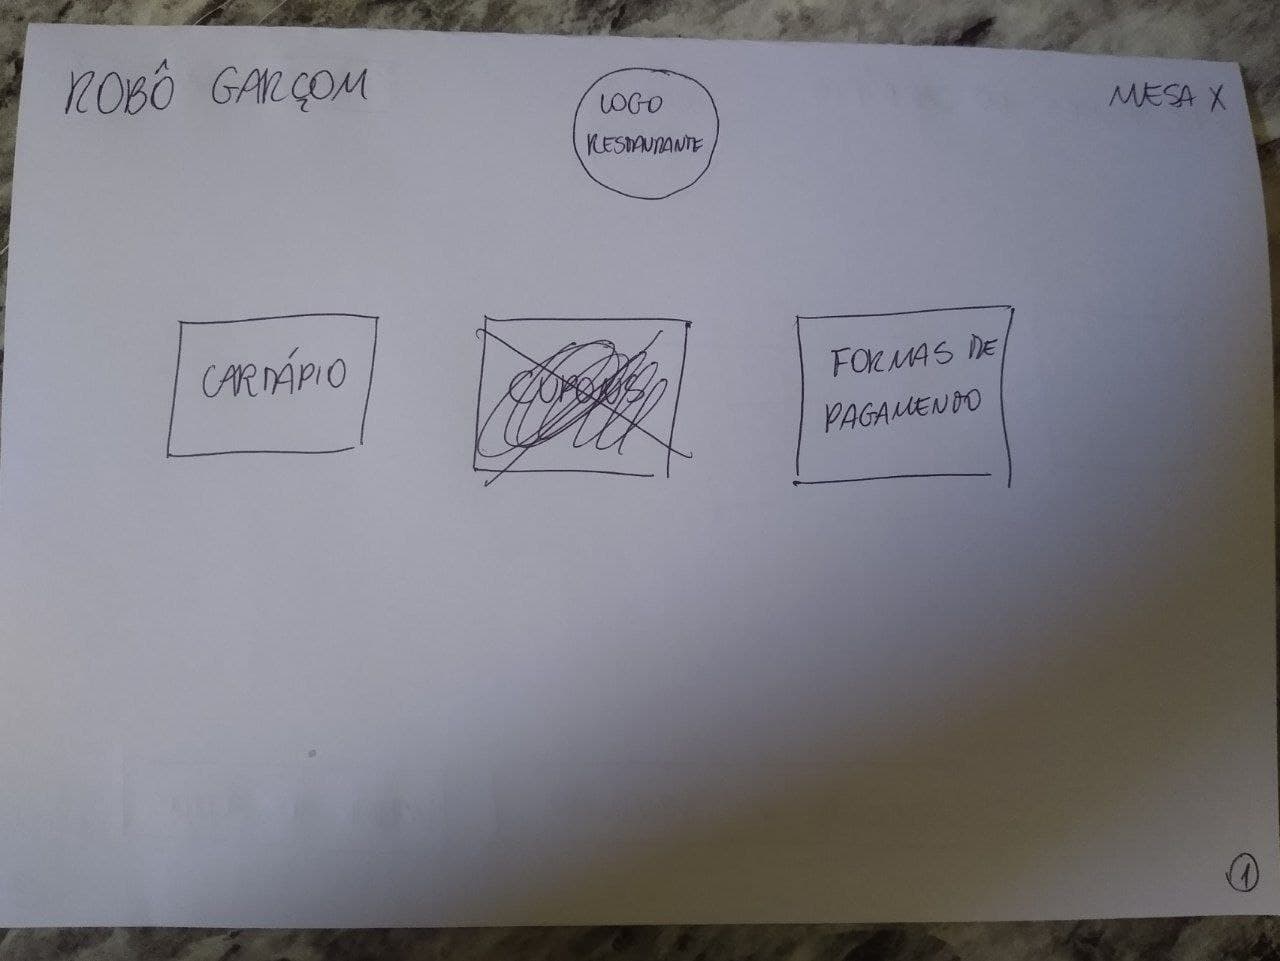 ROBÔ GARÇOM
LOGO
RESTAURANTE
MESA X
CARDÁPIO
CUPONS
FORMAS DE
PAGAMENTO
1